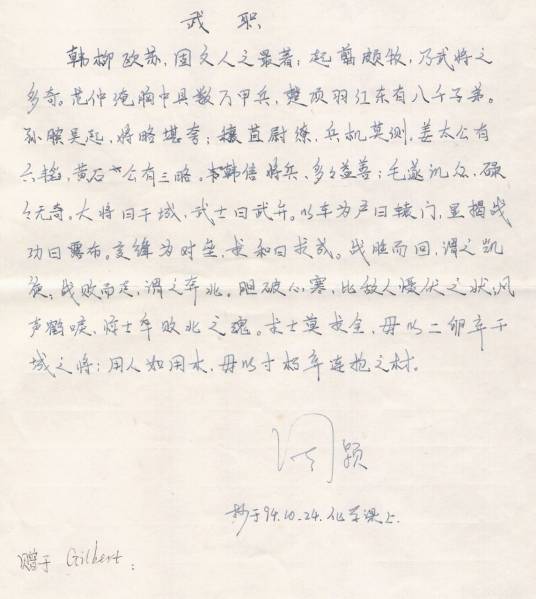 武职
韩柳欧苏,固文人之最著;起翦颇牧,乃武将之
多奇。范仲淹胸中具数万甲兵,楚项羽江东有八千子弟。
孙膑吴起,将略堪夸;穰苴尉缭,兵机莫测,姜太公有
六韬,黄石公有三略。韩信将兵,多多益善;毛遂讥众,碌
々无奇。大将曰干城,武士曰武弁。以车为户曰辕门,显揭战
功曰露布。交锋为对垒,求和曰求成。战胜而回,谓之凯
旋;战败而走,谓之奔北。胆破心寒,比敌人慑伏之状;风
声鹤唳,惊士卒败北之魂。求士莫求全,毋以二卵弃干
城之将;用人如用木,毋以寸朽弃连抱之材。
周 颖
抄于94.10.24.化学课上.
赠于 Gilbert: